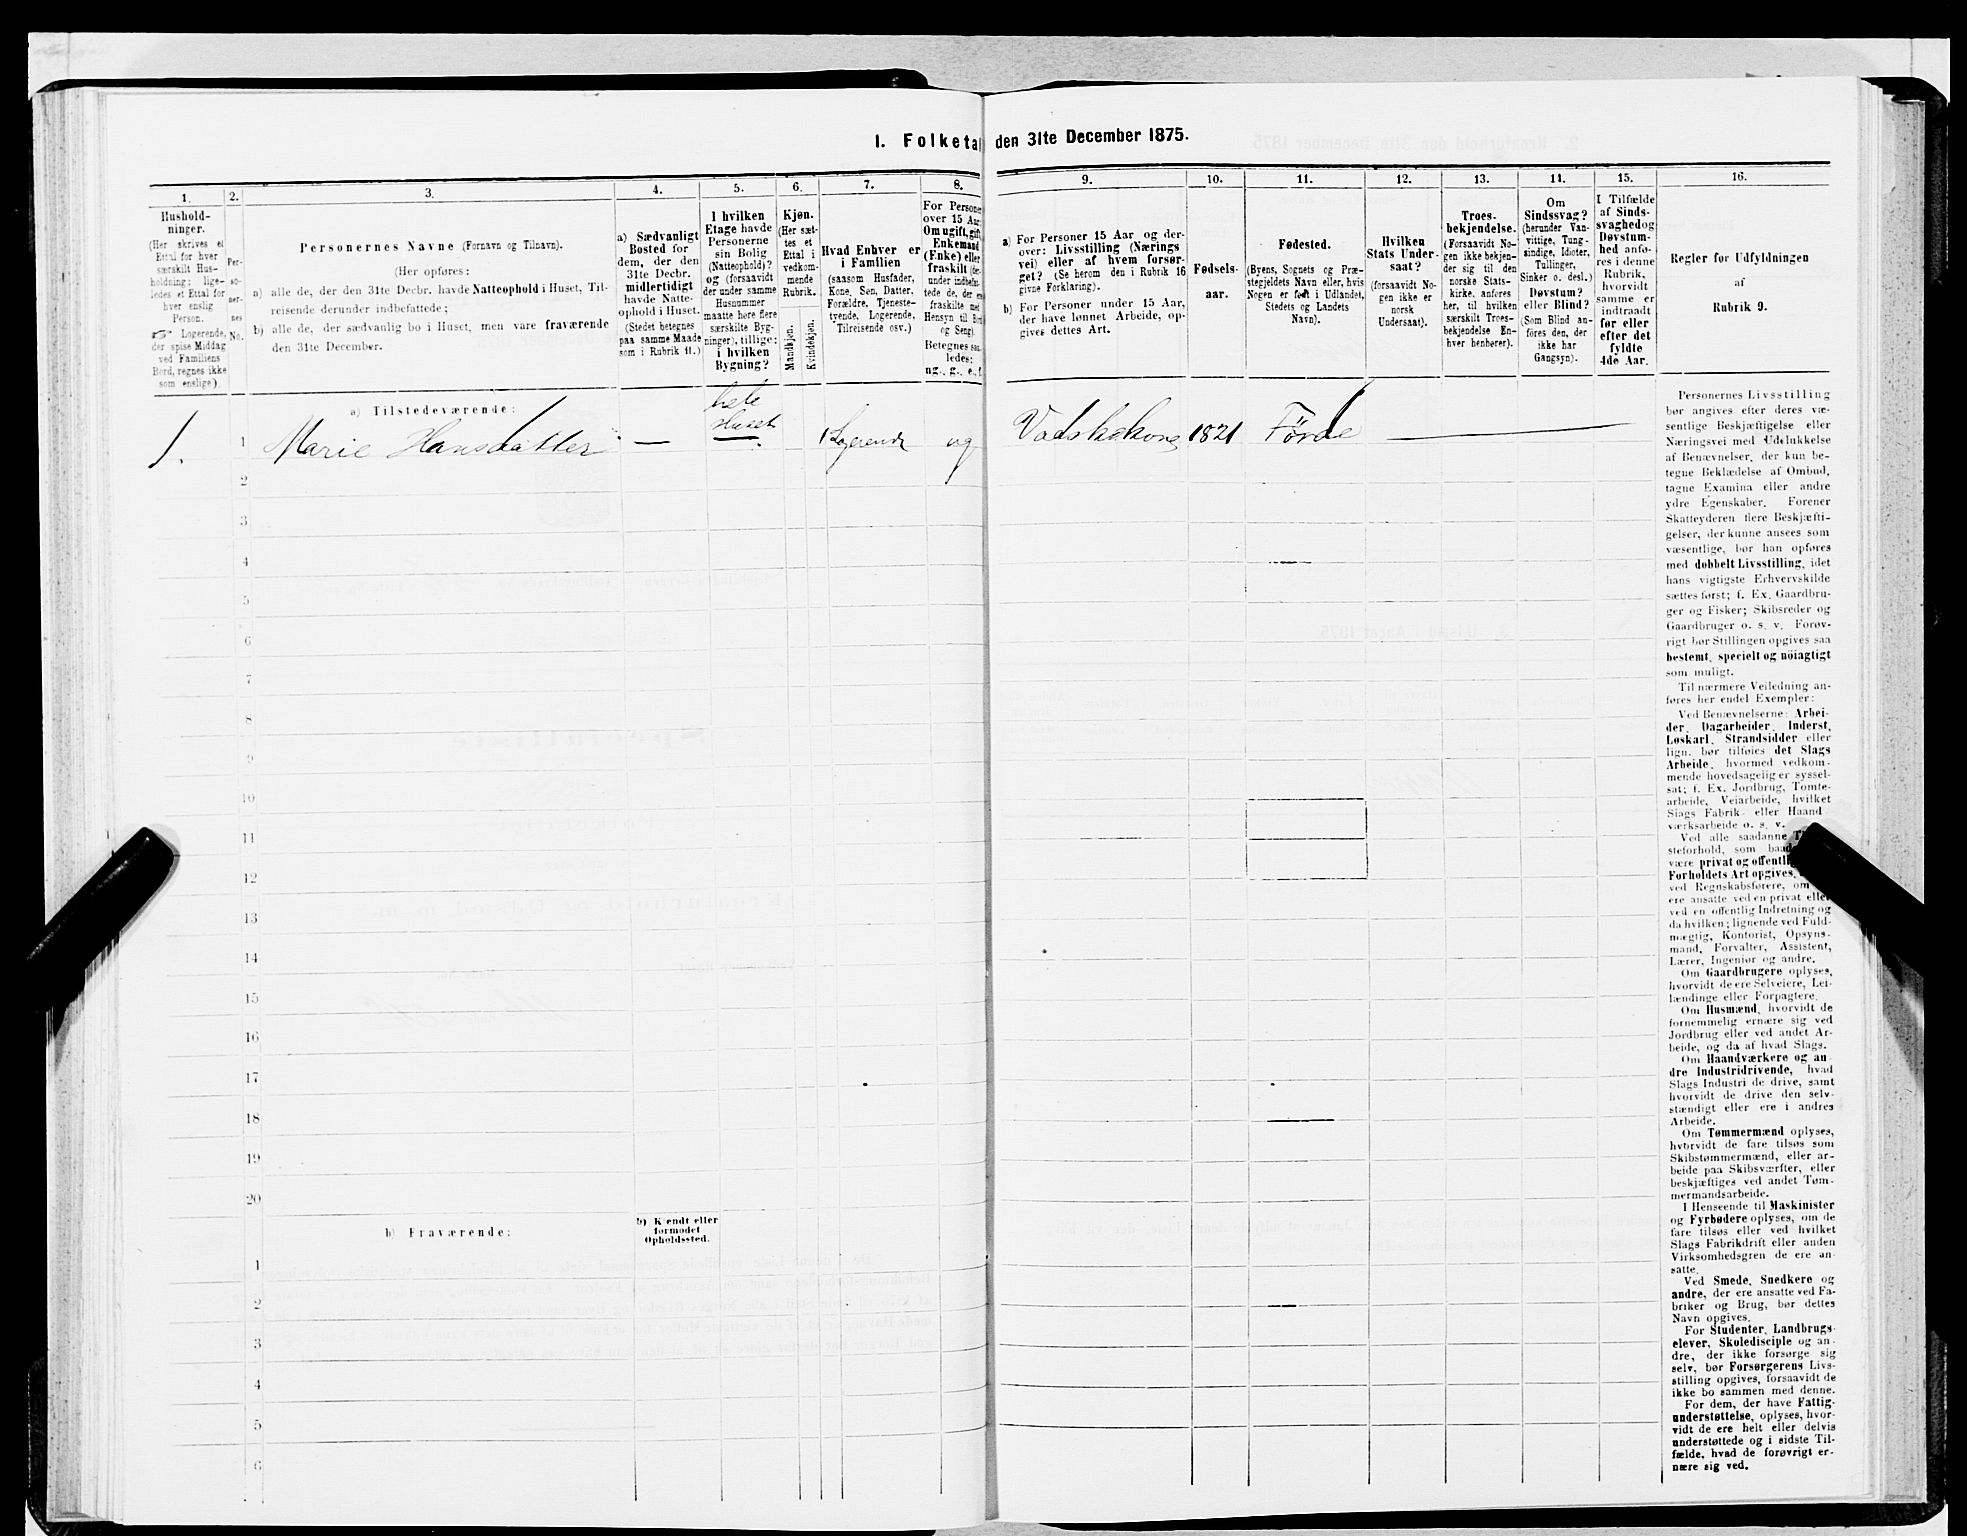 1. Folketal den 31te December 1875.
1.
2.
3.
4.
5.
6.
7.
8.
9.
10.
11.
12.
13.
14.
15.
16.
Hushold-
ninger.
(Her skrives et
Ettal for hver
særskilt Hus-
holdning; lige-
ledes et Ettal for
hver enslig
Person.
☞ Logerende,
der spise Middag
ved Familiens
Bord, regnes ikke
som enslige).
Per-
so-
ner-
nes
No.
Personernes Navne (Fornavn og Tilnavn).
(Her opføres:
a) alle de, der den 31te Decbr. havde Natteophold i Huset, Til-
reisende derunder indbefattede;
b) alle de, der sædvanlig bo i Huset, men vare fraværende
den 31te December.
a) Sædvanligt
Bosted for
dem, der den
31te Decbr.
midlertidigt
havde Natte-
ophold i Huset.
(Stedet betegnes
paa samme Maade
som i Rubrik 11.)
I hvilken
Etage havde
Personerne
sin Bolig
(Natteophold)?
og (forsaavidt
der under samme
Husnummer
maatte høre flere
særskilte Byg-
ninger), tillige:
i hvilken
Bygning?
Kjøn.
(Her sæt-
tes et
Ettal i
vedkom-
mende
Rubrik.
Mandkjøn.
Kvindekjøn.
Hvad Enhver er
i Familien
(saasom Husfader,
Kone, Søn, Datter,
Forældre, Tjeneste-
tyende, Logerende,
Tilreisende osv.)
For Personer
over 15 Aar
Om ugift, gift,
Enkemand
(Enke) eller
fraskilt (der-
under indbefat-
tede de, der ere
fraskilte med
Hensyn til Bord
og Seng).
Betegnes saa-
ledes:
ug., g., e., f.
a) For Personer 15 Aar og der-
over: Livsstilling (Nærings-
vei) eller af hvem forsør-
get? (Se herom den i Rubrik 16
givne Forklaring).
b) For Personer under 15 Aar,
der have lønnet Arbeide, op-
gives dettes Art.
Fødsels-
aar.
Fødested.
(Byens, Sognets og Præ-
stegjeldets Navn eller, hvis
Nogen er født i Udlandet,
Stedets og Landets
Navn).
Hvilken
Stats Under-
saat?
(forsaavidt No-
gen ikke er
norsk
Undersaat).
Troes-
bekjendelse.
(Forsaavidt No-
gen ikke bekjen-
der sig til den
norske Stats-
kirke, anføres
her, til hvilken
særskilt Troes-
bekjendelse En-
hver henhører).
Om
Sindssvag?
(herunder Van-
vittige, Tung-
sindige, Idioter,
Tullinger,
Sinker o. desl.)
Døvstum?
eller Blind?
(Som Blind an-
føres den, der
ikke har
Gangsyn).
I Tilfælde
af Sinds-
svaghed og
Døvstum-
hed anfø-
res i denne
Rubrik,
hvorvidt
samme er
indtraadt
før eller
efter det
fyldte
4de Aar.
Regler for Udfyldningen
af
Rubrik 9.
a) Tilstedeværende:
1. 1 Marie Hansdatter — hele Huset 1 Logerende ug Vadskekone 1821 Förde
2
3
4
5
6
7
8
9
10
11
12
13
14
15
16
17
18
19
20
b) Fraværende:
b) Kjendt eller
formodet
Opholdssted.
1
2
3
4
5
6
Personernes Livsstilling
bør angives efter deres væ-
sentlige Beskjæftigelse eller
Næringsvei med Udelukkelse
af Benævnelser, der kun be-
tegne Beklædelse af Ombud,
tagne Examina eller andre
ydre Egenskaber. Forener
Skatteyderen flere Beskjæfti-
gelser, der kunne ansees som
væsentlige, bør han opføres
med dobbelt Livsstilling, idet
hans vigtigste Erhvervskilde
sættes først; f. Ex. Gaardbru-
ger og Fisker; Skibsreder og
Gaardbruger o. s. v. Forøv-
rigt bør Stillingen opgives saa
bestemt, specielt og nöiagtigt
som muligt.
Til nærmere Veiledning an-
føres her endel Exempler:
Ved Benævnelserne: Arbei-
der, Dagarbeider, Inderst,
Løskarl, Strandsidder eller
lign. bør tilføies det Slags
Arbeide, hvormed vedkom-
mende hovedsagelig er syssel-
sat; f. Ex. Jordbrug, Tomte-
arbeide, Veiarbeide, hvilket
Slags Fabrik- eller Haand-
værksarbeide o. s. v.
Ved alle saadanne
steforhold, som
være privat og
Forholdets Art opgives,
ved Regnskabsførere, om
ere ansatte ved en privat eller
ved en offentlig Indretning og
da hvilken; lignende ved Fuld-
mægtig, Kontorist, Opsyns-
mand, Forvalter, Assistent,
Lærer, Ingeniør og andre.
Om Gaardbrugere oplyses,
hvorvidt de ere Selveiere, Lei-
lændinge eller Forpagtere.
Om Husmænd, hvorvidt de
fornemmelig ernære sig ved
Jordbrug eller ved andet Ar-
beide, og da af hvad Slags.
Om Haandværkere og an-
dre Industridrivende, hvad
Slags Industri de drive, samt
hvorvidt de drive den selv-
stændigt eller ere i andres
Arbeide.
Om Tømmermænd oplyses,
hvorvidt de fare tilsøs som
Skibstømmermænd, eller ar-
beide paa Skibsværfter, eller
beskjæftiges ved andet Tøm-
mermandsarbeide.
I Henseende til Maskinister
og Fyrbødere oplyses, om de
fare tilsøs eller ved hvilket
Slags Fabrikdrift eller anden
Virksomhedsgren de ere an-
satte.
Ved Smede, Snedkere og
andre, der ere ansatte ved Fa-
briker og Brug, bør dettes
Navn opgives.
For Studenter, Landbrugs-
elever, Skoledisciple og an-
dre, der ikke forsørge sig
selv, bør Forsørgerens Livs-
stilling opgives, forsaavidt de
ikke bo sammen med denne.
For dem, der have Fattig-
understøttelse, oplyses, hvor-
vidt de ere helt eller delvis
understøttede og i sidste Til-
fælde, hvad de forøvrigt er-
nære sig ved.